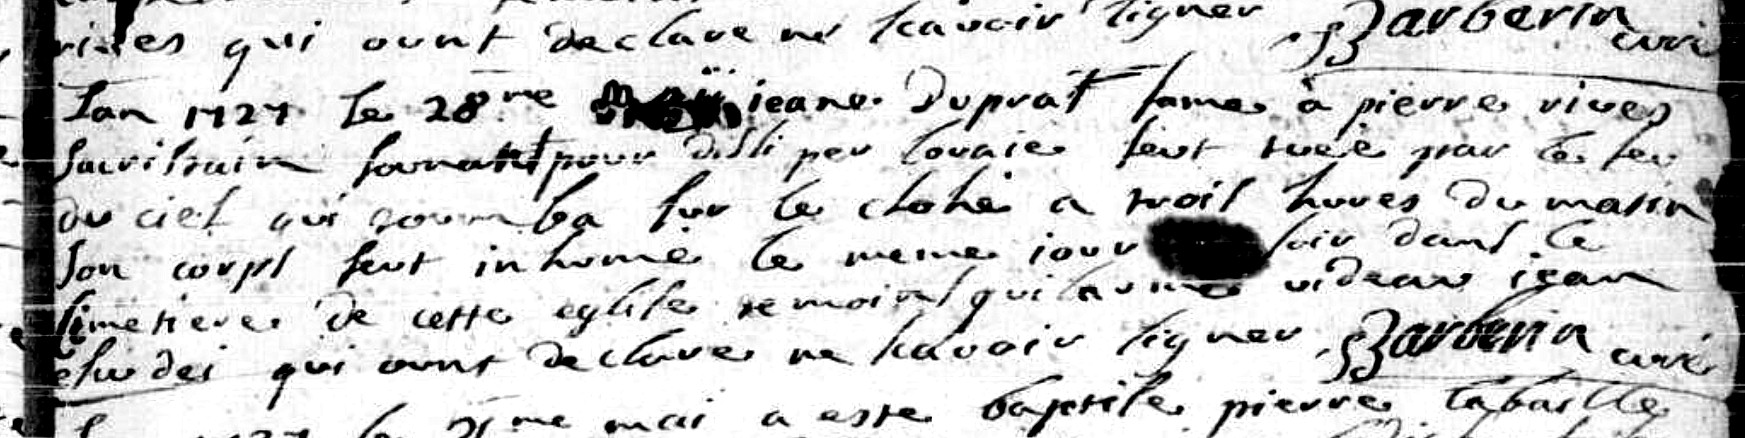 rives qui ount declare ne scavoir signer Barberin curé
Lan 1727 le 28me jeane Duprat fame a pierre rives
sacristain sonant pour dissiper loraie feut tuée par le feu
du ciel qui tomba sur le clohé a trois hures du matin
son corps feut inhumé le meme jour soir dans le
simetiere de cette eglise temoins videau jean
qui ount declare ne scavoir signer Barberin curé
le 31me mai a este baptise pierre